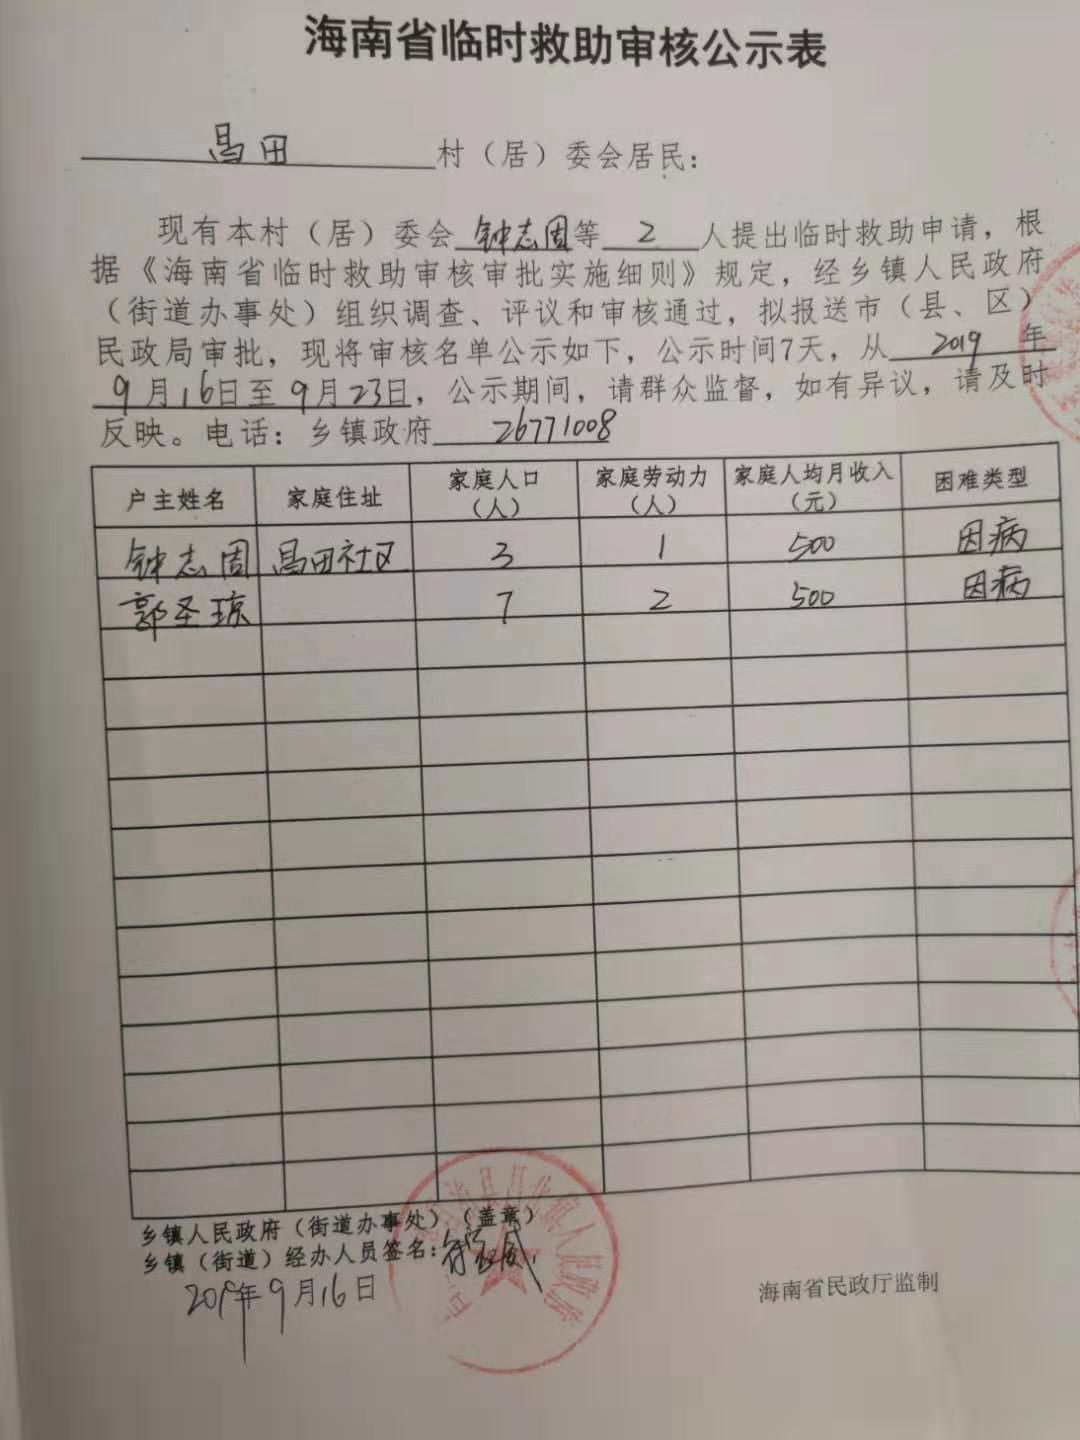 海南省临时救助审核公示表
昌田村（居）委会居民：
现有本村（居）委会钟志周等2人提出临时救助申请，根
据《海南省临时救助审核审批实施细则》规定，经乡镇人民政府
（街道办事处）组织调查、评议和审核通过，拟报送市（县、区）
民政局审批，现将审核名单公示如下，公示时间7天，从2019年
9月16日至9月23日，公示期间，请群众监督，如有异议，请及时
反映。电话：乡镇政府26771008
户主姓名 家庭住址 家庭人口（人） 家庭劳动力（人） 家庭人均月收入（元） 困难类型
钟志周 昌田社区 3 1 500 因病
郭圣琼 7 2 500 因病
乡镇人民政府（街道办事处）（盖章）
乡镇（街道）经办人员签名：
2019年9月16日
海南省民政厅监制